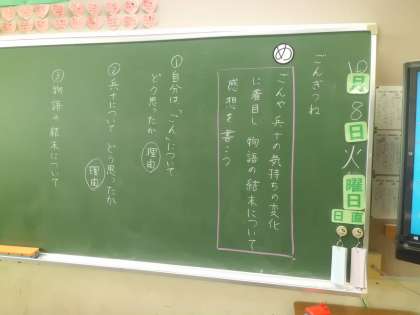 10月8日火曜日
日直
ごんぎつね
め
ごんや兵十の気持ちの変化
に着目し物語の結末について
感想を書こう
①自分は「ごん」について
どう思ったか 理由
②兵十について どう思ったか
理由
③物語の結末について